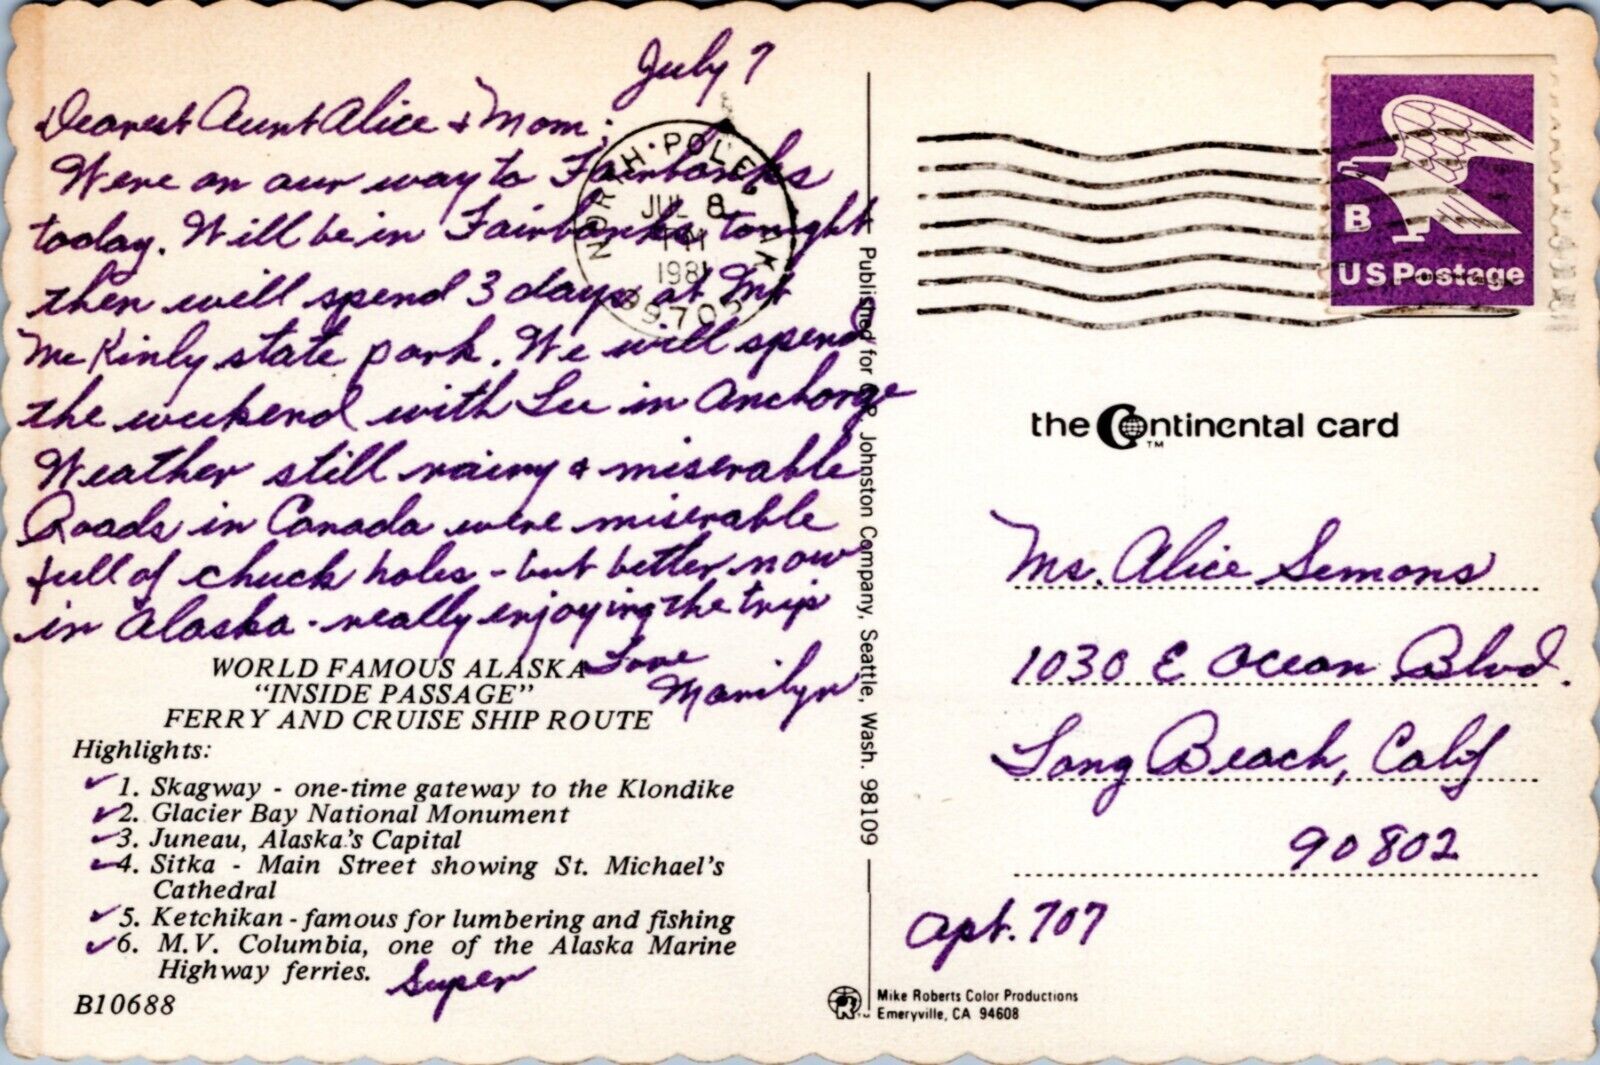 July 7
Dearest Aunt Alice & Mom:
Were on our way to Fairbanks
today. Will be in Fairbanks tonight
then will spend 3 days at Mt
McKinly state park. We will spend
the weekend with Lee in Anchorge
Weather still rainy & miserable
Roads in Canada were miserable
full of chuck holes - but better now
in Alaska - really enjoying the trip
Love
Marilyn
WORLD FAMOUS ALASKA
"INSIDE PASSAGE"
FERRY AND CRUISE SHIP ROUTE
Highlights:
✓1. Skagway - one-time gateway to the Klondike
✓2. Glacier Bay National Monument
✓3. Juneau, Alaska's Capital
✓4. Sitka - Main Street showing St. Michael's
Cathedral
✓5. Ketchikan - famous for lumbering and fishing
✓6. M.V. Columbia, one of the Alaska Marine
Highway ferries. Super
B10688
NORTH POLE AK
JUL 8
PM
1981
99705
Published for C.P. Johnston Company, Seattle, Wash. 98109
B
US Postage
the Continental card
TM
Ms. Alice Semons
1030 E Ocean Blvd.
Long Beach, Calif
90802
Apt. 707
Mike Roberts Color Productions
Emeryville, CA 94608